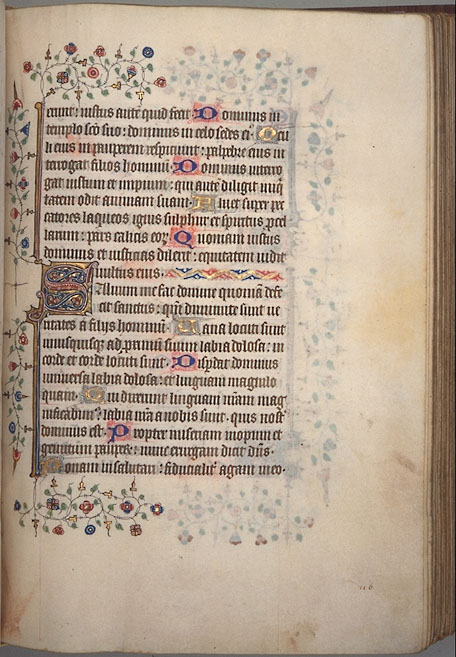 erunt: iustus autē quid fecit Dominus in
templo sc̄o suo: dominus in celo sedes ei⁹. Ocu
li eius in pauperem respiciunt: palpebre eius in
terrogāt filios hominum. Dominus interro
gat iustum et impium: qui autē diligit iniq̄
tatem odit animam suam. Pluet super pec
catores laqueos ignis sulphur et spiritus procel
larum: pars calicis eoꝝ. Quoniam iustus
dominus et iusticias dilexit: equitatem uidit
uultus eius.
Saluum me fac domine quoniā defe
cit sanctus: qm̄ diminute sunt ue
ritates a filijs hominum. Uana locuti sunt
unusquisqȝ ad proximū suum: labia dolosa: in
corde et corde locuti sunt. Disꝑdat dominus
uniuersa labia dolosa: et linguam magnilo
quam. Qui dixerunt linguam nr̄am mag
nificabim⁹: labia nr̄a a nobis sunt. quis nost̄
dominus est. Propter miseriam inopum et
gemitum pauperꝝ: nunc exurgam dicit dn̄s.
Ponam in salutari: fiducialit̄ agam in eo.